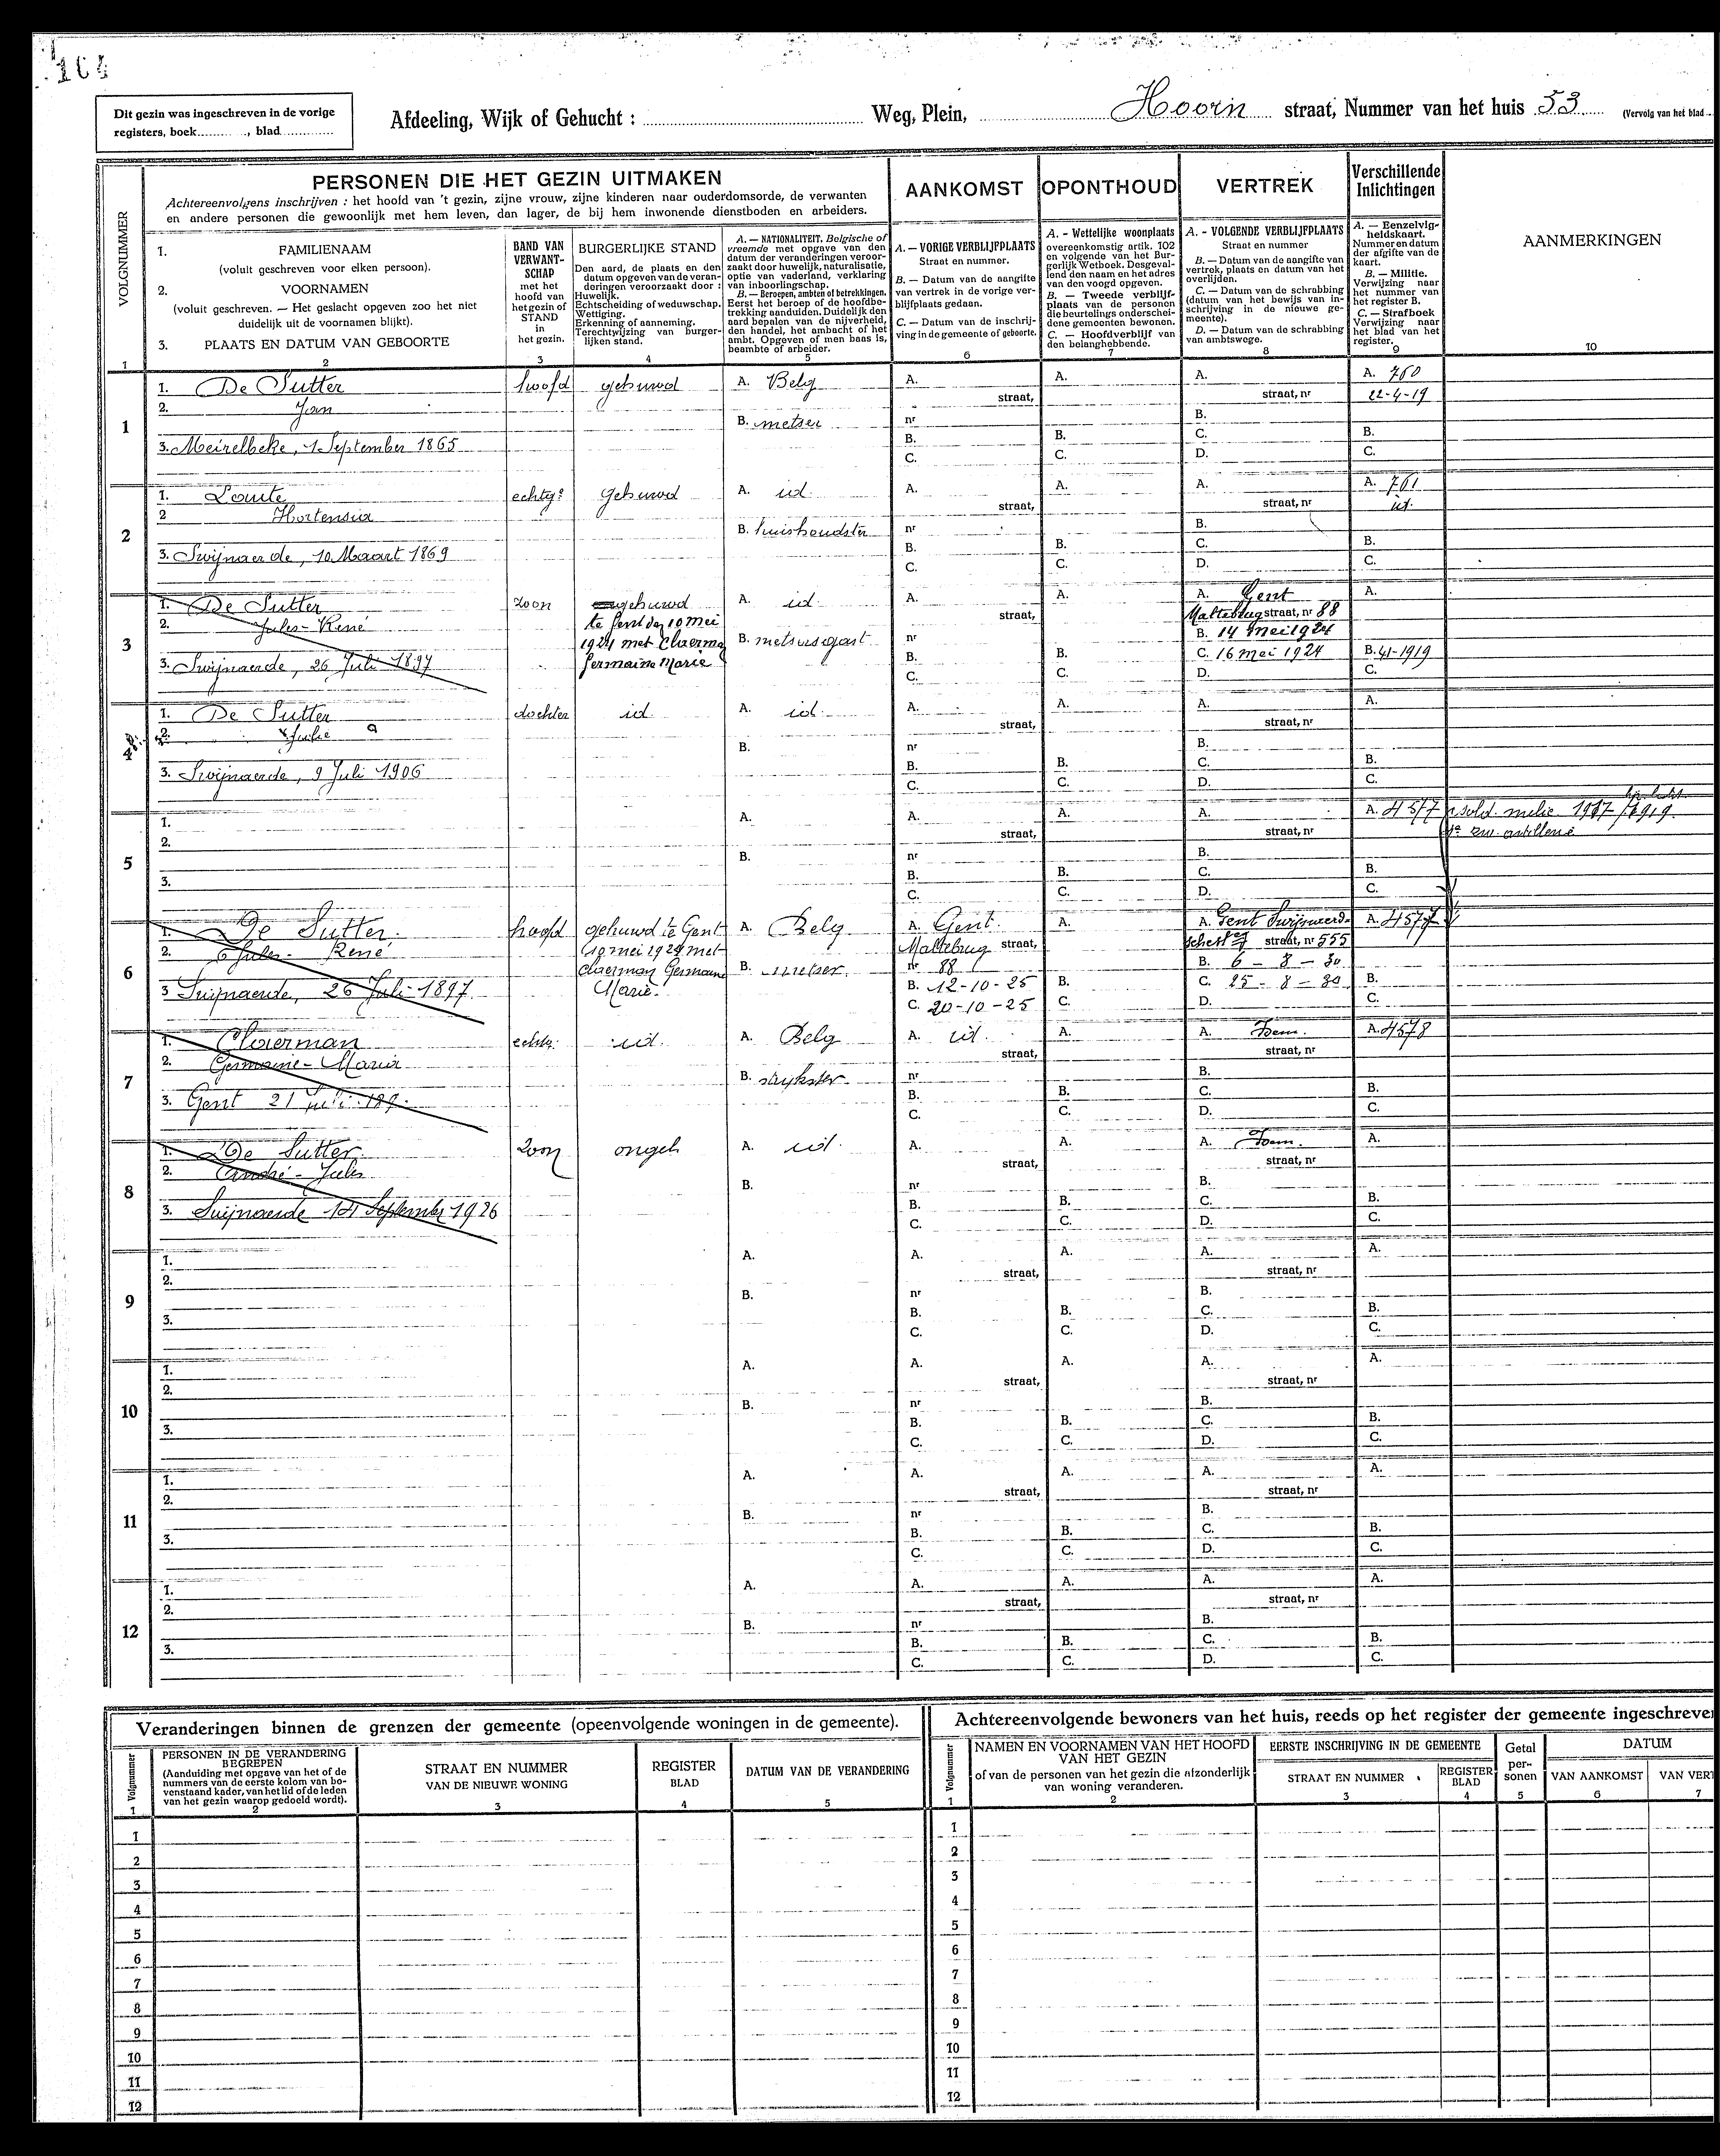 164
Dit gezin was ingeschreven in de vorige
registers, boek, blad
Afdeeling, Wijk of Gehucht : Weg, Plein, Hoorn straat, Nummer van het huis 53 (Vervolg van het blad
PERSONEN DIE HET GEZIN UITMAKEN
Achtereenvolgens inschrijven : het hoofd van 't gezin, zijne vrouw, zijne kinderen naar ouderdomsorde, de verwanten
en andere personen die gewoonlijk met hem leven, dan lager, de bij hem inwonende dienstboden en arbeiders.
AANKOMST
OPONTHOUD
VERTREK
Verschillende
Inlichtingen
AANMERKINGEN
VOLGNUMMER
1. FAMILIENAAM
(voluit geschreven voor elken persoon).
2. VOORNAMEN
(voluit geschreven. — Het geslacht opgeven zoo het niet
duidelijk uit de voornamen blijkt).
3. PLAATS EN DATUM VAN GEBOORTE
BAND VAN
VERWANT-
SCHAP
met het
hoofd van
het gezin of
STAND
in
het gezin.
BURGERLIJKE STAND
Den aard, de plaats en den
datum opgeven van de veran-
deringen veroorzaakt door :
Huwelijk.
Echtscheiding of weduwschap.
Wettiging.
Erkenning of aanneming.
Terechtwijzing van burger-
lijken stand.
A. — NATIONALITEIT. Belgische of
vreemde met opgave van den
datum der veranderingen veroor-
zaakt door huwelijk, naturalisatie,
optie van vaderland, verklaring
van inboorlingschap.
B. — Beroepen, ambten of betrekkingen.
Eerst het beroep of de hoofdbe-
trekking aanduiden. Duidelijk den
aard bepalen van de nijverheid,
den handel, het ambacht of het
ambt. Opgeven of men baas is,
beambte of arbeider.
A. — VORIGE VERBLIJFPLAATS
Straat en nummer.
B. — Datum van de aangifte
van vertrek in de vorige ver-
blijfplaats gedaan.
C. — Datum van de inschrij-
ving in de gemeente of geboorte.
A. - Wettelijke woonplaats
overeenkomstig artik. 102
en volgende van het Bur-
gerlijk Wetboek. Desgeval-
lend den naam en het adres
van den voogd opgeven.
B. — Tweede verblijf-
plaats van de personen
die beurtelings onderschei-
dene gemeenten bewonen.
C. — Hoofdverblijf van
den belanghebbende.
A. - VOLGENDE VERBLIJFPLAATS
Straat en nummer
B. — Datum van de aangifte van
vertrek, plaats en datum van het
overlijden.
C. — Datum van de schrabbing
(datum van het bewijs van in-
schrijving in de nieuwe ge-
meente).
D. — Datum van de schrabbing
van ambtswege.
A. — Eenzelvig-
heidskaart.
Nummer en datum
der afgifte van de
kaart.
B. — Militie.
Verwijzing naar
het nummer van
het register B.
C. — Strafboek
Verwijzing naar
het blad van het
register.
1 2 3 4 5 6 7 8 9 10
1. De Sutter hoofd gehuwd A. Belg A. A. A. A. 760
straat, straat, nr 22-4-19
2. Jan
1 B. metser nr B.
3. Meirelbeke, 1 September 1865 B. B. C. B.
C. C. D. C.
1. Loute echtg. gehuwd A. id. A. A. A. A. 761
2 Hortensia straat, straat, nr id.
2 B. huishoudster nr B.
3. Swijnaerde, 10 Maart 1869 B. B. C. B.
C. C. D. C.
1. De Sutter zoon gehuwd A. id. A. A. A. Gent A.
2. Jules-René te Gent den 10 mei straat, Maltebrug straat, nr 88
3 1924 met Claerman B. metsersgast nr B. 14 mei 1924
3. Swijnaerde, 26 Juli 1897 Germaine Marie B. B. C. 16 mei 1924 B. 41-1919
C. C. D. C.
1. De Sutter dochter id A. id. A. A. A. A.
2. Julie straat, straat, nr
4 B. nr B.
3. Swijnaerde, 9 Juli 1906 B. B. C. B.
C. C. D. C.
1. A. A. A. A. A. 4577 sold. milic. 1917/1919.
2. straat, straat, nr artillerie
5 B. nr B.
3. B. B. C. B.
C. C. D. C.
1. De Sutter hoofd gehuwd te Gent A. Belg A. Gent. A. A. Gent Swijnaerd- A. 4577
2. Jules- René 10 mei 1924 met Maltebrug straat, sche stg straat, nr 555
6 Claerman Germaine B. metser. nr 88 B. 6 - 8 - 30
3 Swijnaerde, 26 Juli 1897 Marie. B. 12-10-25 B. C. 25 - 8 - 30 B.
C. 20-10-25 C. D. C.
1. Claerman echtg. id. A. Belg A. id. A. A. Idem. A. 4578
2. Germaine-Maria straat, straat, nr
7 B. strijkster nr B.
3. Gent 21 juli 189 B. B. C. B.
C. C. D. C.
1. De Sutter zoon ongeh A. id. A. A. A. Idem. A.
2. André-Jules straat, straat, nr
8 B. nr B.
3. Swijnaerde 14 September 1926 B. B. C. B.
C. C. D. C.
1. A. A. A. A. A.
2. straat, straat, nr
9 B. nr B.
3. B. B. C. B.
C. C. D. C.
1. A. A. A. A. A.
2. straat, straat, nr
10 B. nr B.
3. B. B. C. B.
C. C. D. C.
1. A. A. A. A. A.
2. straat, straat, nr
11 B. nr B.
3. B. B. C. B.
C. C. D. C.
1. A. A. A. A. A.
2. straat, straat, nr
12 B. nr B.
3. B. B. C. B.
C. C. D. C.
Veranderingen binnen de grenzen der gemeente (opeenvolgende woningen in de gemeente).
Volgnummer
PERSONEN IN DE VERANDERING
BEGREPEN
(Aanduiding met opgave van het of de
nummers van de eerste kolom van bo-
venstaand kader, van het lid of de leden
van het gezin waarop gedoeld wordt).
STRAAT EN NUMMER
VAN DE NIEUWE WONING
REGISTER
BLAD
DATUM VAN DE VERANDERING
1 2 3 4 5
1
2
3
4
5
6
7
8
9
10
11
12
Achtereenvolgende bewoners van het huis, reeds op het register der gemeente ingeschreve
Volgnummer
NAMEN EN VOORNAMEN VAN HET HOOFD
VAN HET GEZIN
of van de personen van het gezin die afzonderlijk
van woning veranderen.
EERSTE INSCHRIJVING IN DE GEMEENTE
STRAAT EN NUMMER
REGISTER
BLAD
Getal
per-
sonen
DATUM
VAN AANKOMST
VAN VERT
1 2 3 4 5 6 7
1
2
3
4
5
6
7
8
9
10
11
12